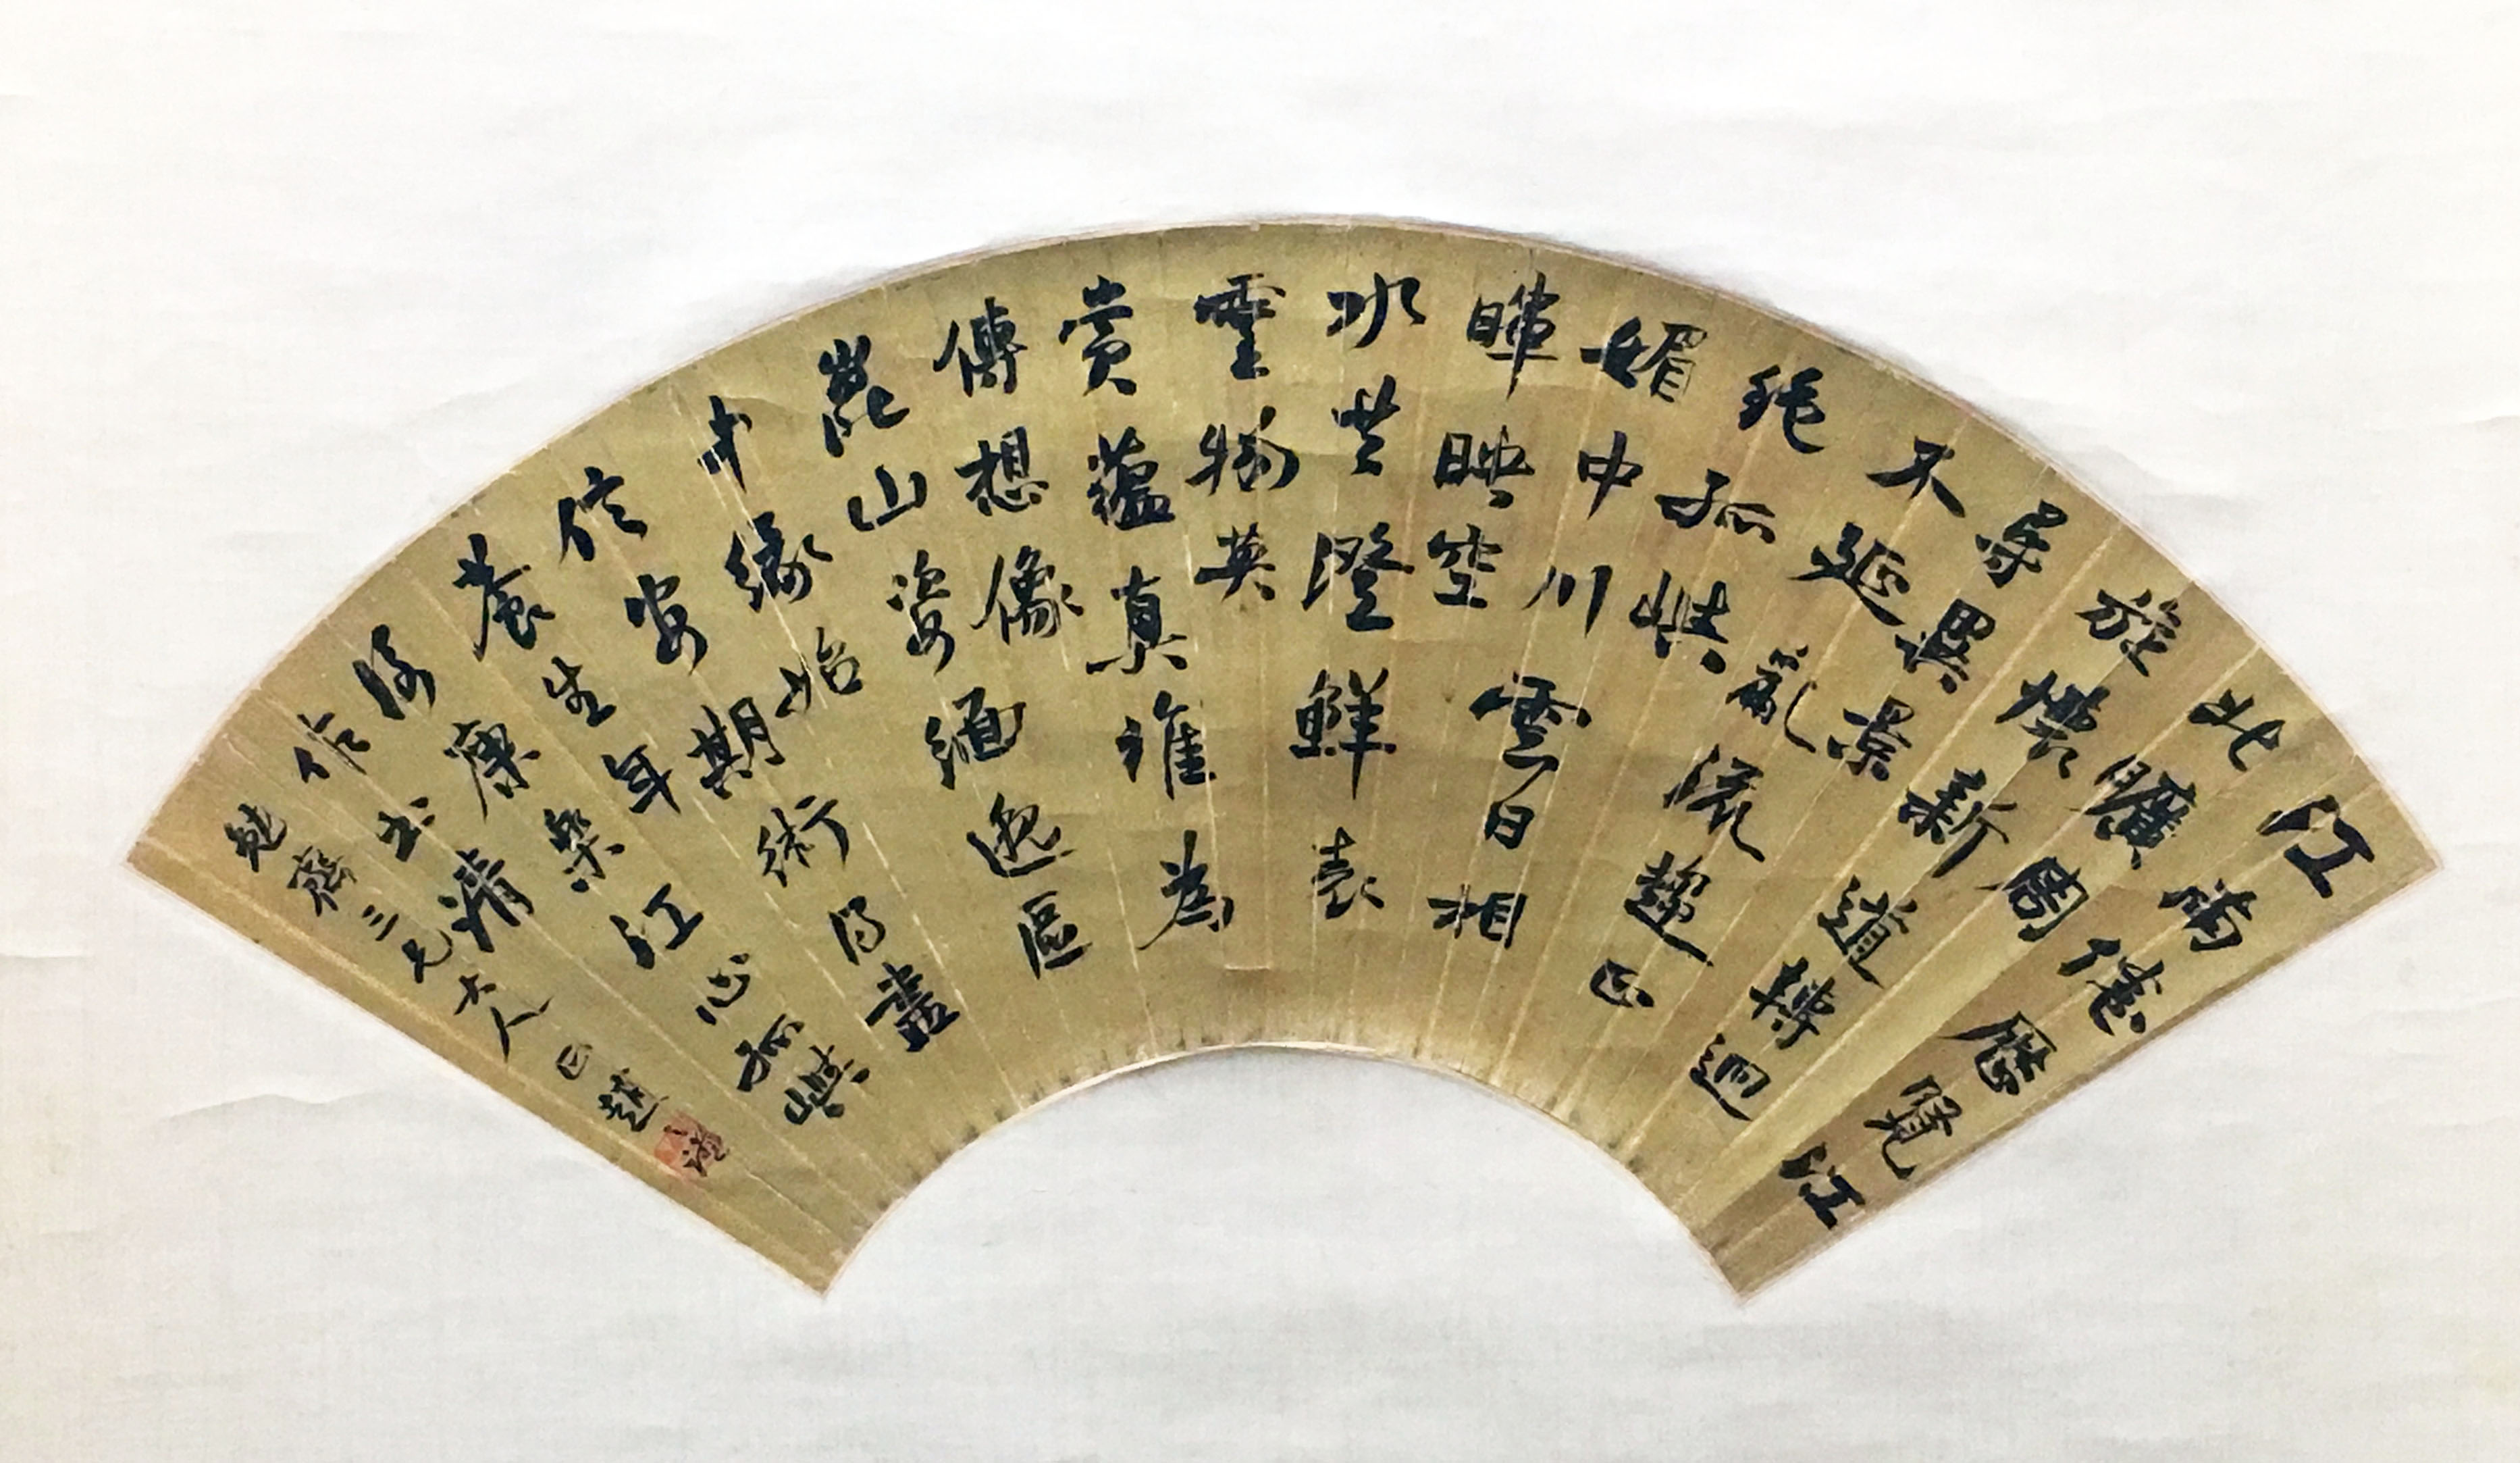 江南倦歷覽江
北曠周
旋懷新道轉迥
尋異景
不延亂流趨正
絕孤嶼
媚中川雲日相
暉映空
水共澄鮮表
靈物莫
賞蘊真誰為
傳想像
崑山姿緬邈區
中緣始
信安期術得盡
養生年
康樂江心孤嶼
作書請
勉齋三兄大人正